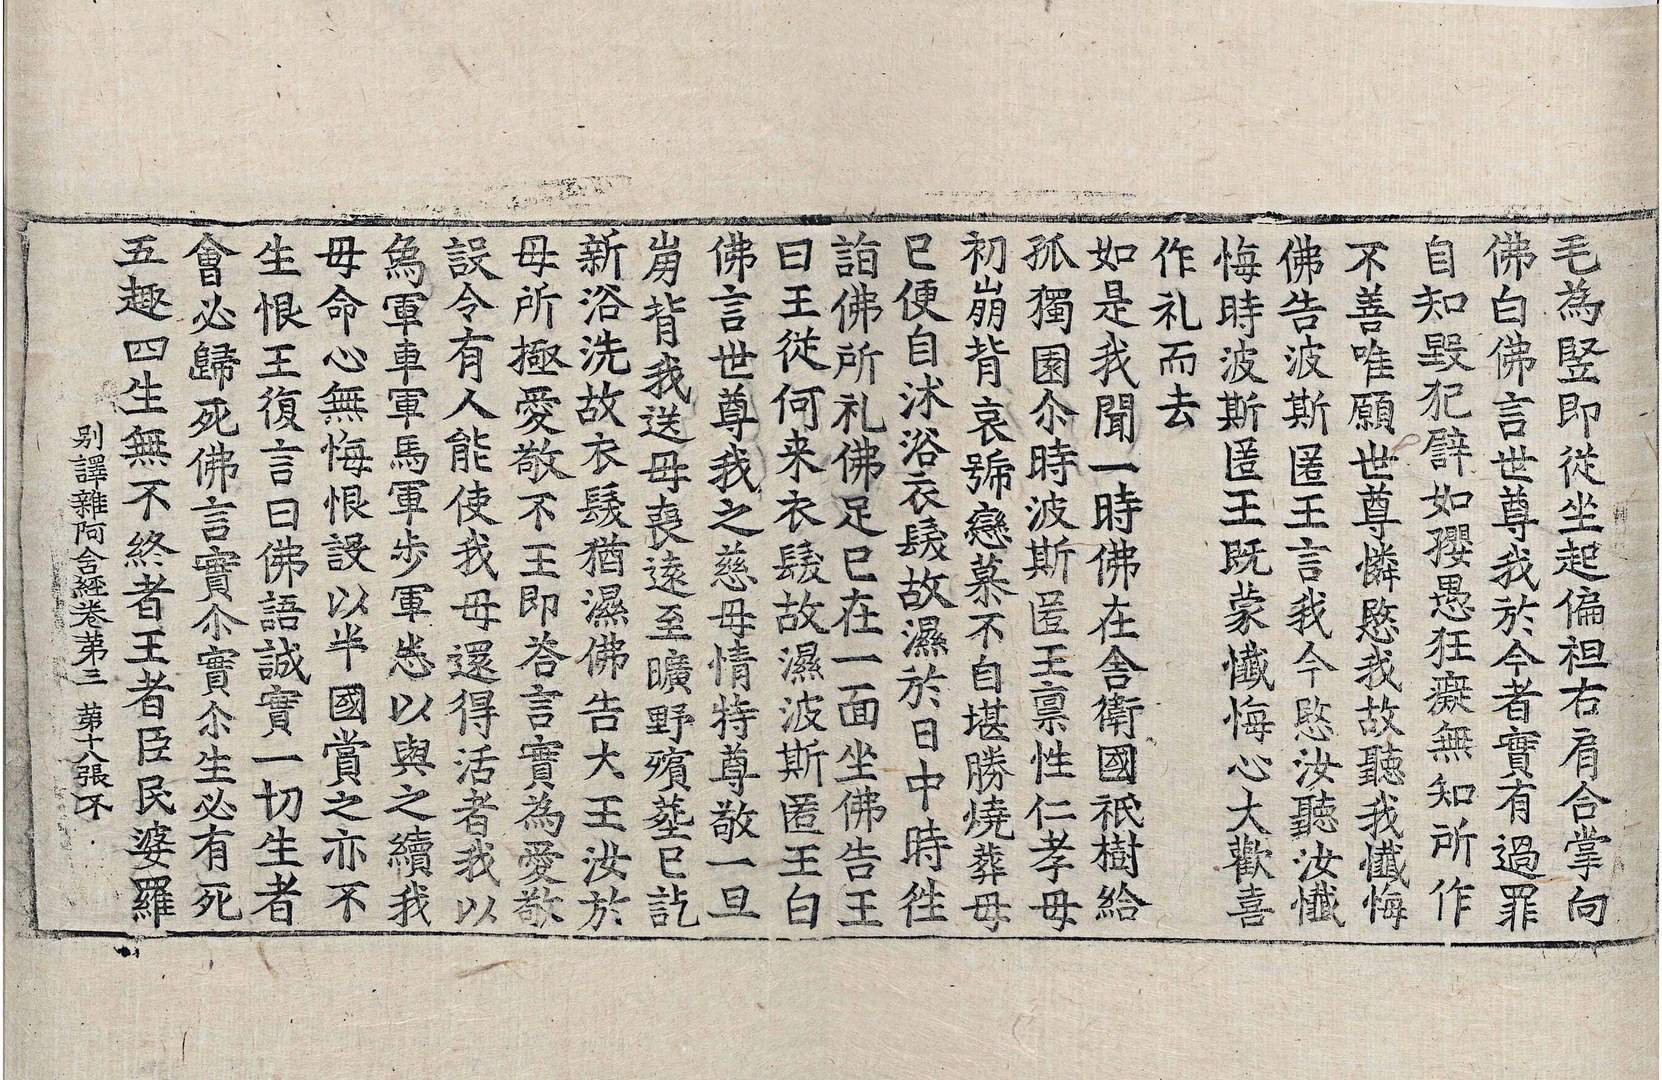 毛為竪即從坐起偏袒右肩合掌向
佛白佛言世尊我於今者實有過罪
自知毀犯譬如孾愚狂癡無知所作
不善唯願世尊憐愍我故聽我懺悔
佛告波斯匿王言我今愍汝聽汝懺
悔時波斯匿王既蒙懺悔心大歡喜
作礼而去
如是我聞一時佛在舍衛國祇樹給
孤獨園尒時波斯匿王禀性仁孝母
初崩背哀號戀慕不自堪勝燒葬母
已便自沐浴衣髮故濕於日中時徃
詣佛所礼佛足已在一面坐佛告王
曰王從何来衣髮故濕波斯匿王白
佛言世尊我之慈母情特尊敬一旦
崩背我送母喪遠至曠野殯塟已訖
新浴洗故衣髮猶濕佛告大王汝於
母所極愛敬不王即荅言實為愛敬
設令有人能使我母還得活者我以
象軍車軍馬軍步軍悉以與之續我
母命心無悔恨設以半國賞之亦不
生恨王復言曰佛語誠實一切生者
會必歸死佛言實尒實尒生必有死
五趣四生無不終者王者臣民婆羅
別譯雜阿含經卷第三 第十八張 不